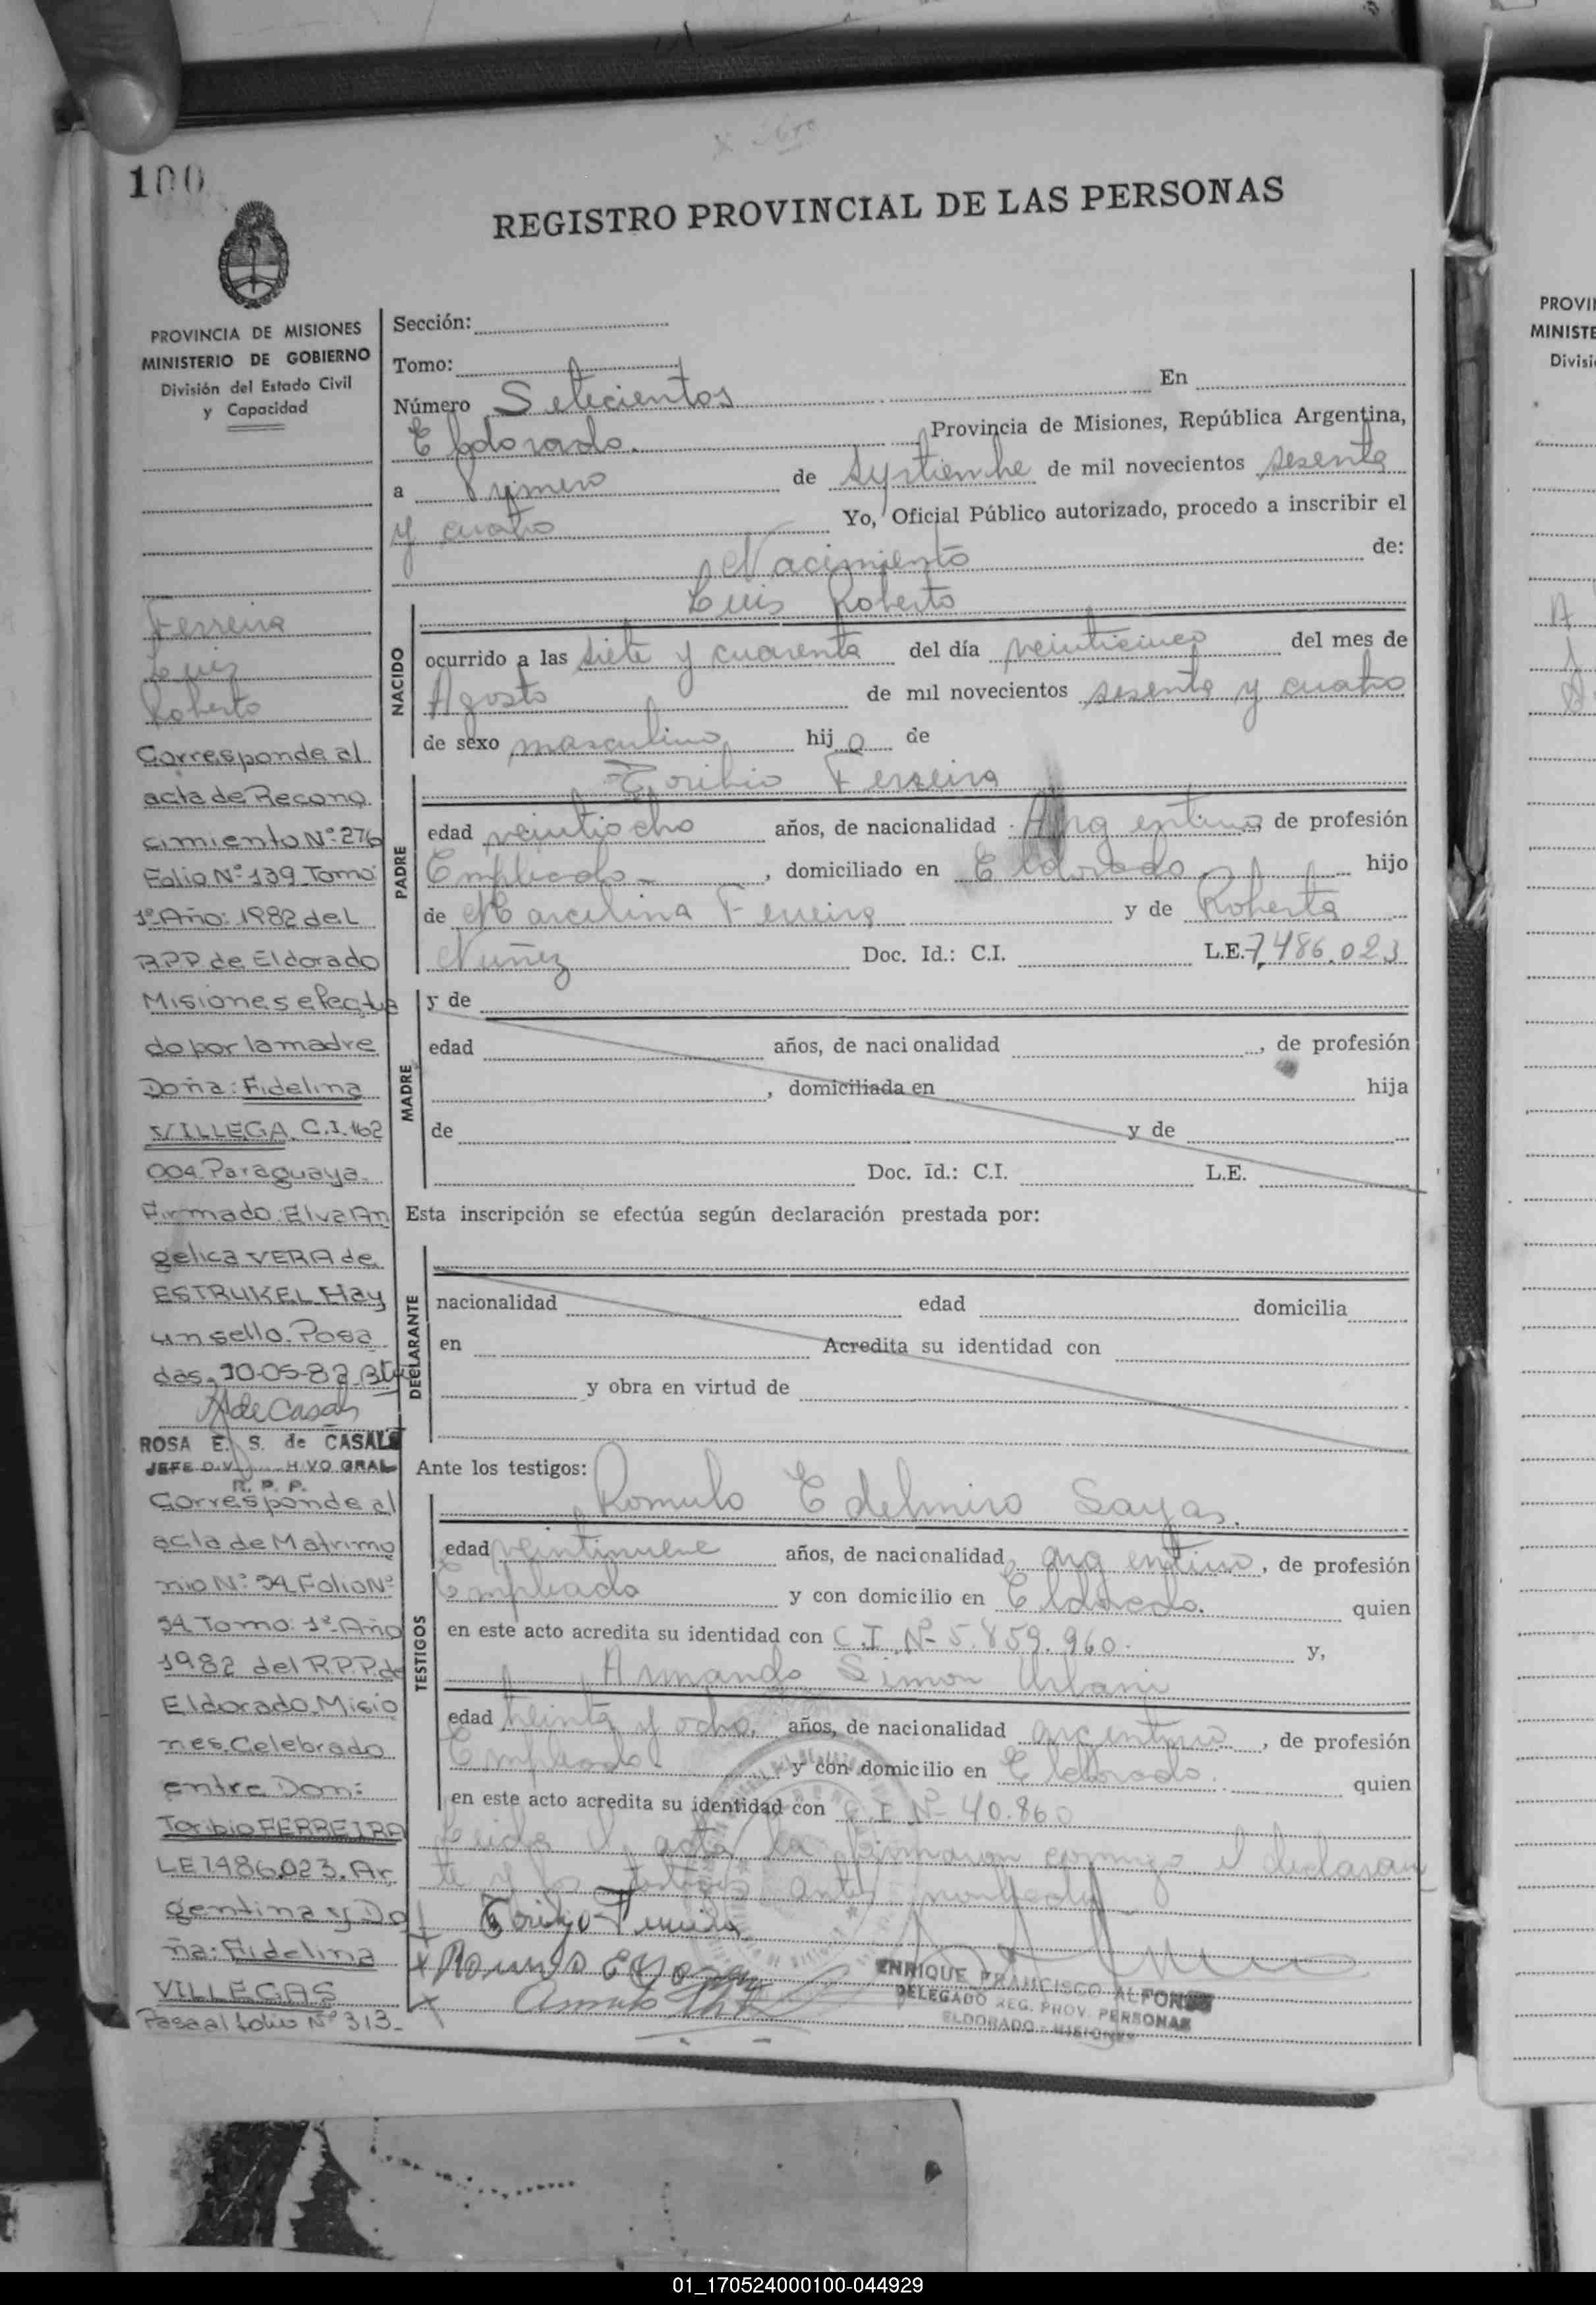 100
REGISTRO PROVINCIAL DE LAS PERSONAS
PROVINCIA DE MISIONES
MINISTERIO DE GOBIERNO
División del Estado Civil
y Capacidad
Ferreira
Luis
Roberto
Corresponde al
acta de Recono
cimiento Nº 276
Folio Nº 139 Tomo
1º Año: 1982 del
R.P.P de Eldorado
Misiones efectua
do por la madre
Doña: Fidelina
VILLEGA C.I. 162
004 Paraguaya.
Firmado: Elva An
gelica VERA de
ESTRUKEL Hay
un sello. Posa
das, 10-05-82
ROSA E. S. de CASALS
JEFE DIV HIVO GRAL
R. P. P.
Corresponde al
acta de Matrimo
nio Nº 54 Folio Nº
54 Tomo: 1º Año
1982 del R.P.P. de
Eldorado. Misio
nes. Celebrado
entre Don:
Toribio FERREIRA
LE 7.486.023. Ar
gentina y Do
ña: Fidelina
VILLEGAS
Pasa al folio Nº 313.
Sección:
Tomo:
Número Setecientos En
Eldorado. Provincia de Misiones, República Argentina,
a Primero de Septiembre de mil novecientos sesenta
y cuatro Yo, Oficial Público autorizado, procedo a inscribir el
Nacimiento de:
Luis Roberto
NACIDO
ocurrido a las siete y cuarenta del día veinticinco del mes de
Agosto de mil novecientos sesenta y cuatro
de sexo masculino hijo de
Toribio Ferreira
PADRE
edad veintiocho años, de nacionalidad Argentina de profesión
Empleado , domiciliado en Eldorado hijo
de Marcelina Ferreira y de Roberta
Nuñez Doc. Id.: C.I. L.E. 7.486.023
MADRE
y de
edad años, de nacionalidad , de profesión
, domiciliada en hija
de y de
Doc. Id.: C.I. L.E.
Esta inscripción se efectúa según declaración prestada por:
DECLARANTE
nacionalidad edad domicilia
en Acredita su identidad con
y obra en virtud de
Ante los testigos:
Romulo Edelmiro Sayas.
TESTIGOS
edad veintinueve años, de nacionalidad argentino, de profesión
Empleado y con domicilio en Eldorado. quien
en este acto acredita su identidad con C.I. Nº 5.859.960. y,
Armando Simon Urbani
edad treinta y ocho. años, de nacionalidad argentino , de profesión
Empleado. y con domicilio en Eldorado. quien
en este acto acredita su identidad con C.I Nº 40.860
Leida el acta la firmaron conmigo el declaran
te y los testigos antes nombrados
Toribio Ferreira
ENRIQUE FRANCISCO ALFONSO
DELEGADO REG. PROV. PERSONAS
ELDORADO - MISIONES
PROVI
MINISTE
Divisi
01_170524000100-044929